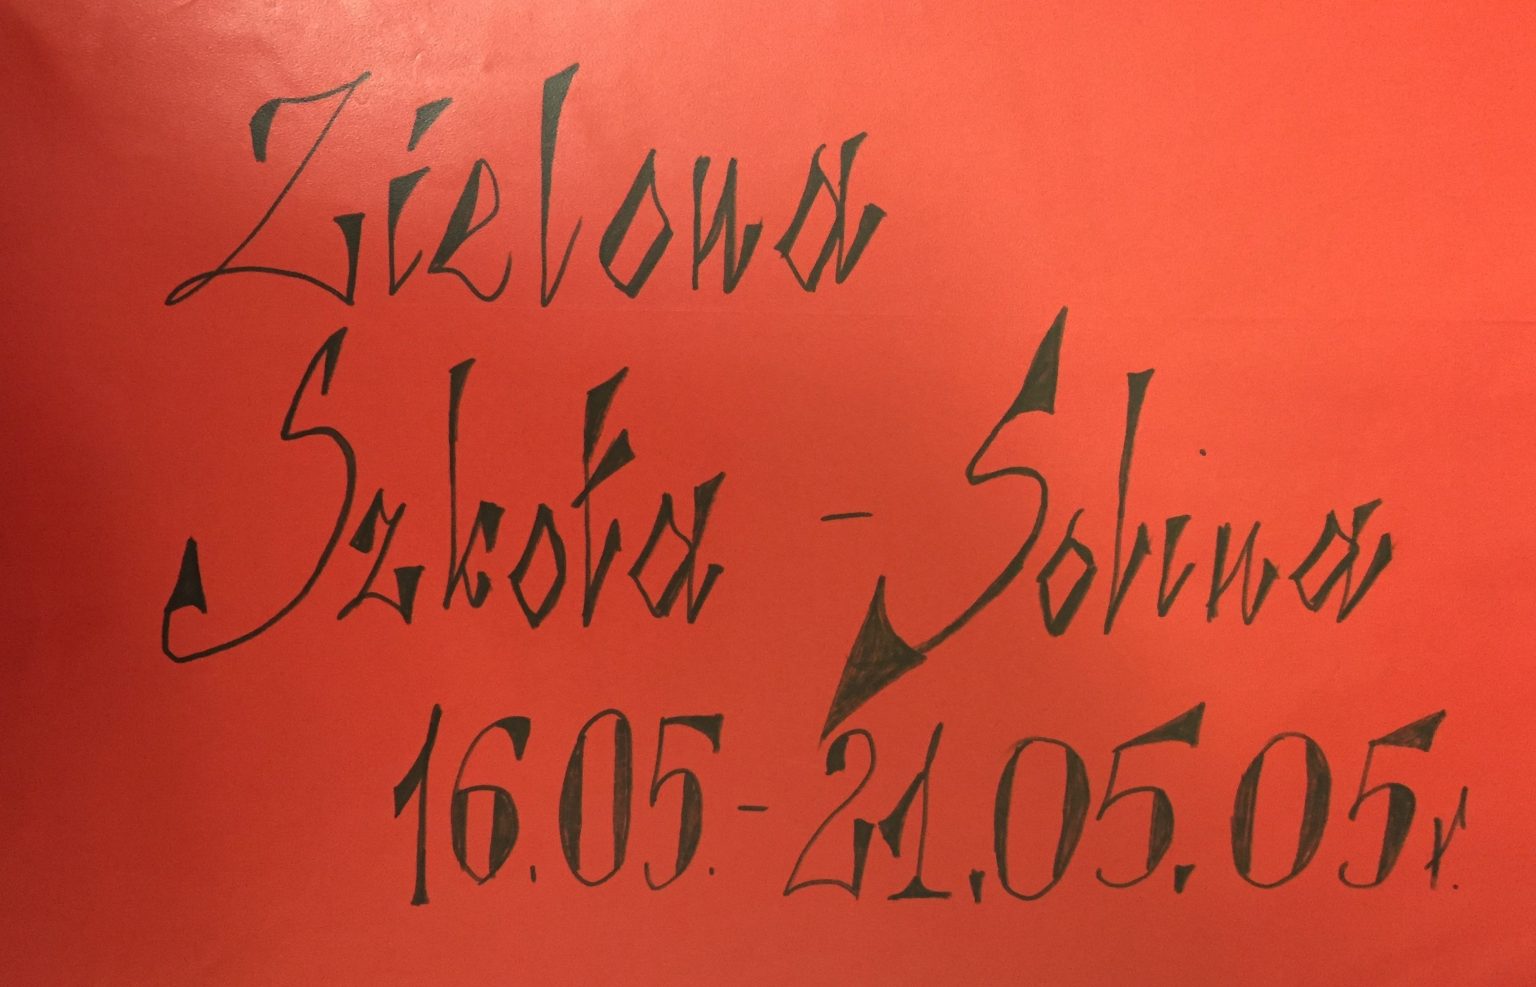 Zielona
Szkoła - Solina
16.05.-21.05.05r.